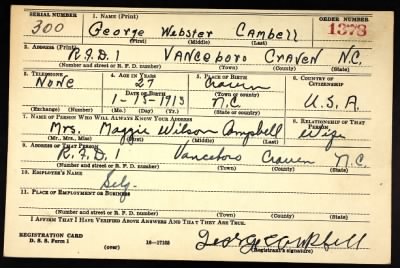 SERIAL NUMBER 1. NAME (Print) ORDER NUMBER
300 George Webster Cambell 1373
(First) (Middle) (Last)
2. ADDRESS (Print)
R.F.D. 1 Vanceboro Craven N.C.
(Number and street or R. F. D. number) (Town) (County) (State)
3. TELEPHONE 4. AGE IN YEARS 5. PLACE OF BIRTH 6. COUNTRY OF CITIZENSHIP
None 27 Craven
DATE OF BIRTH (Town or county)
1-15-1913 N.C. U.S.A.
(Exchange) (Number) (Mo.) (Day) (Yr.) (State or country)
7. NAME OF PERSON WHO WILL ALWAYS KNOW YOUR ADDRESS 8. RELATIONSHIP OF THAT PERSON
Mrs. Maggie Wilson Campbell Wife
(Mr., Mrs., Miss) (First) (Middle) (Last)
9. ADDRESS OF THAT PERSON
R.F.D. 1 Vanceboro Craven N.C.
(Number and street or R. F. D. number) (Town) (County) (State)
10. EMPLOYER'S NAME
Self
11. PLACE OF EMPLOYMENT OR BUSINESS
(Number and street or R. F. D. number) (Town) (County) (State)
I AFFIRM THAT I HAVE VERIFIED ABOVE ANSWERS AND THAT THEY ARE TRUE.
REGISTRATION CARD
D. S. S. Form 1 (over) 16-17105 George Campbell
(Registrant's signature)